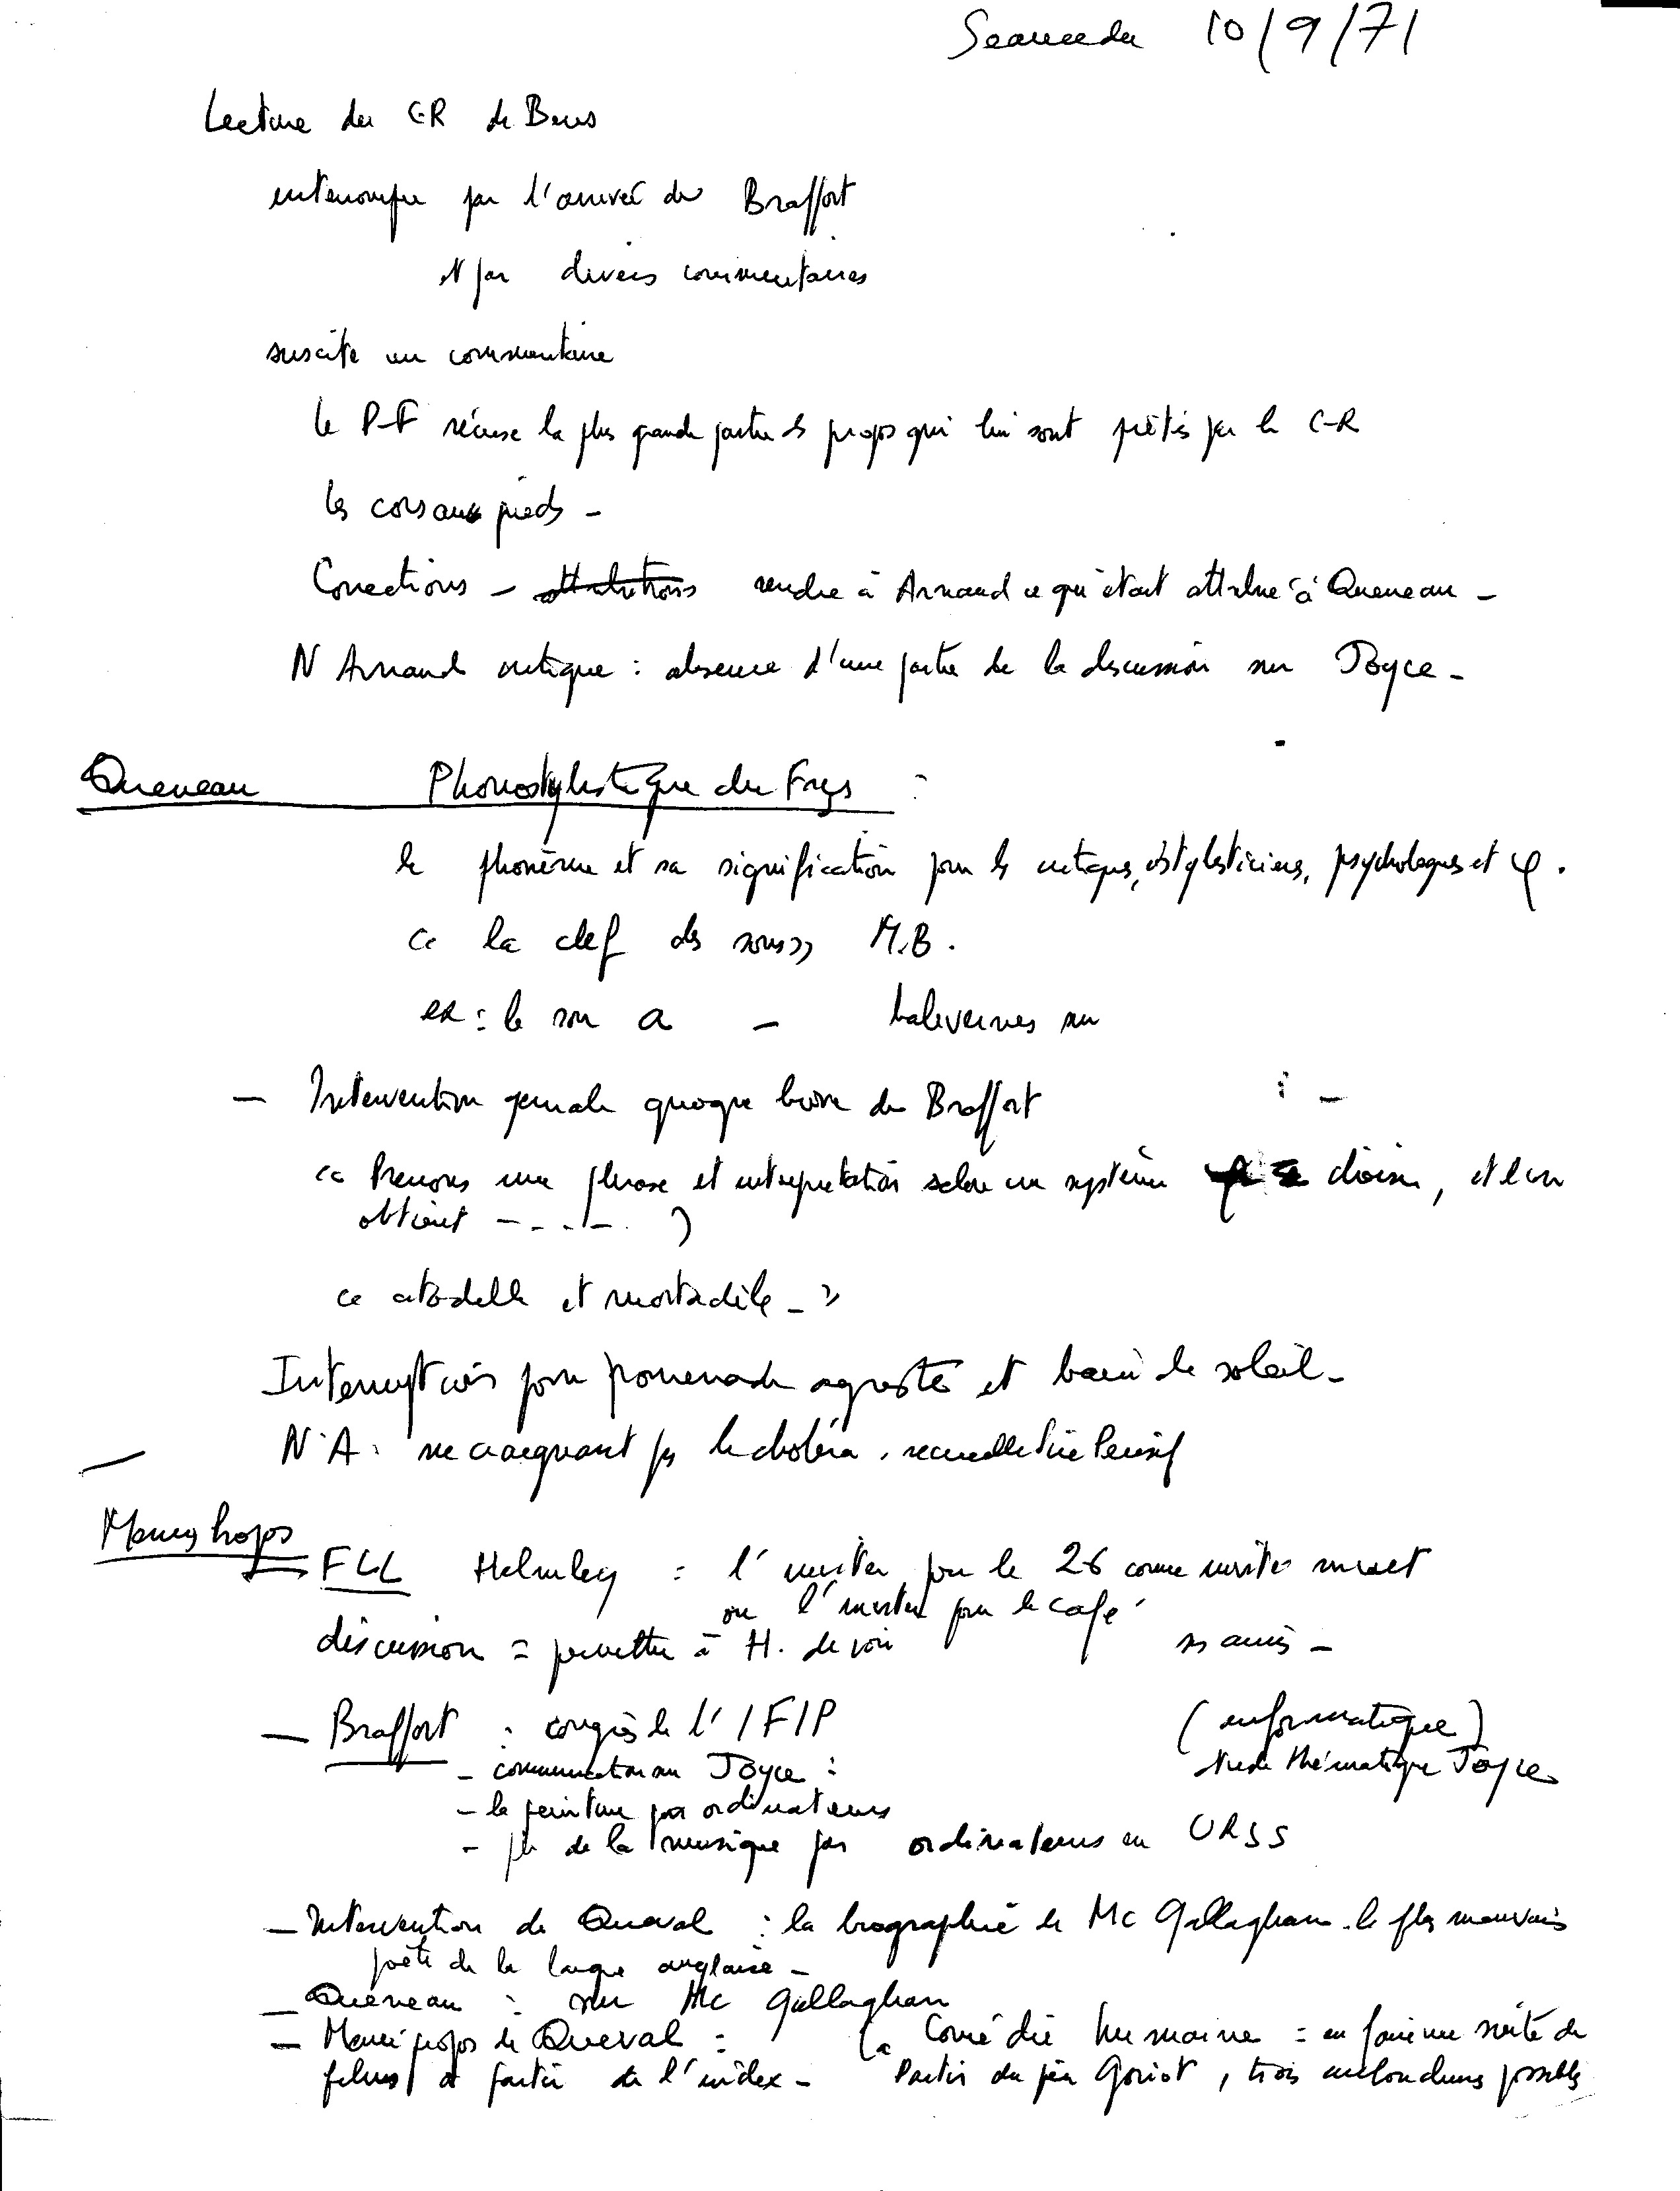 Séance du 10/9/71
Lecture du CR de Bens
interrompue par l'arrivée de Braffort
et par divers commentaires
suscite un commentaire
le P-F récuse la plus grande partie des propos qui lui sont prêtés par le C-R
les cors aux pieds -
Corrections - attributions rendre à Arnaud ce qui était attribué à Queneau -
N Arnaud critique : absence d'une partie de la discussion sur Joyce -
Queneau Phonostylistique du Frçs :
le phonème et sa signification pour les critiques, stylisticiens, psychologues et φ.
« la clef des sons » M.B.
ex : le son a - balivernes sur
- Intervention géniale quoique brève de Braffort : -
« Prenons une phrase et interprétation selon un système choisi, et l'on
obtient - . . . - . )
« citadelle et mortadelle - »
Interruption pour promenade agreste et bain de soleil -
N.A. ne craignant pas le choléra,
Menus propos
- FLL : l'inviter pour le 26 comme invité muet
ou l'inviter pour le café
discussion = permettre à H. de voir ses amis -
- Braffort : congrès de l'IFIP (informatique)
- communication sur Joyce : étude thématique Joyce
- la peinture par ordinateurs
- de la musique par ordinateurs en URSS
- Intervention de Queval : la biographie de Mc Gallaghan - le plus mauvais
poète de la langue anglaise -
- Queneau : sur Mc Gallaghan
- Menu propos de Queval : la Comédie humaine = en faire une suite de
films à partir de l'index - Partir du père Goriot, trois possibles